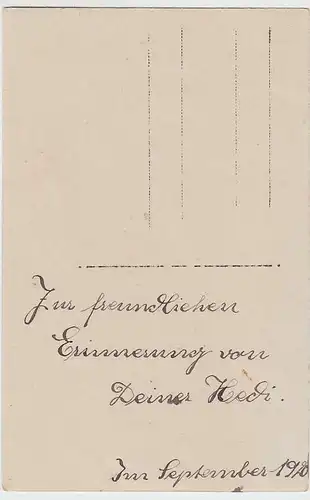 Zur freundlichen
Erinnerung von
Deiner Hedi.
Im September